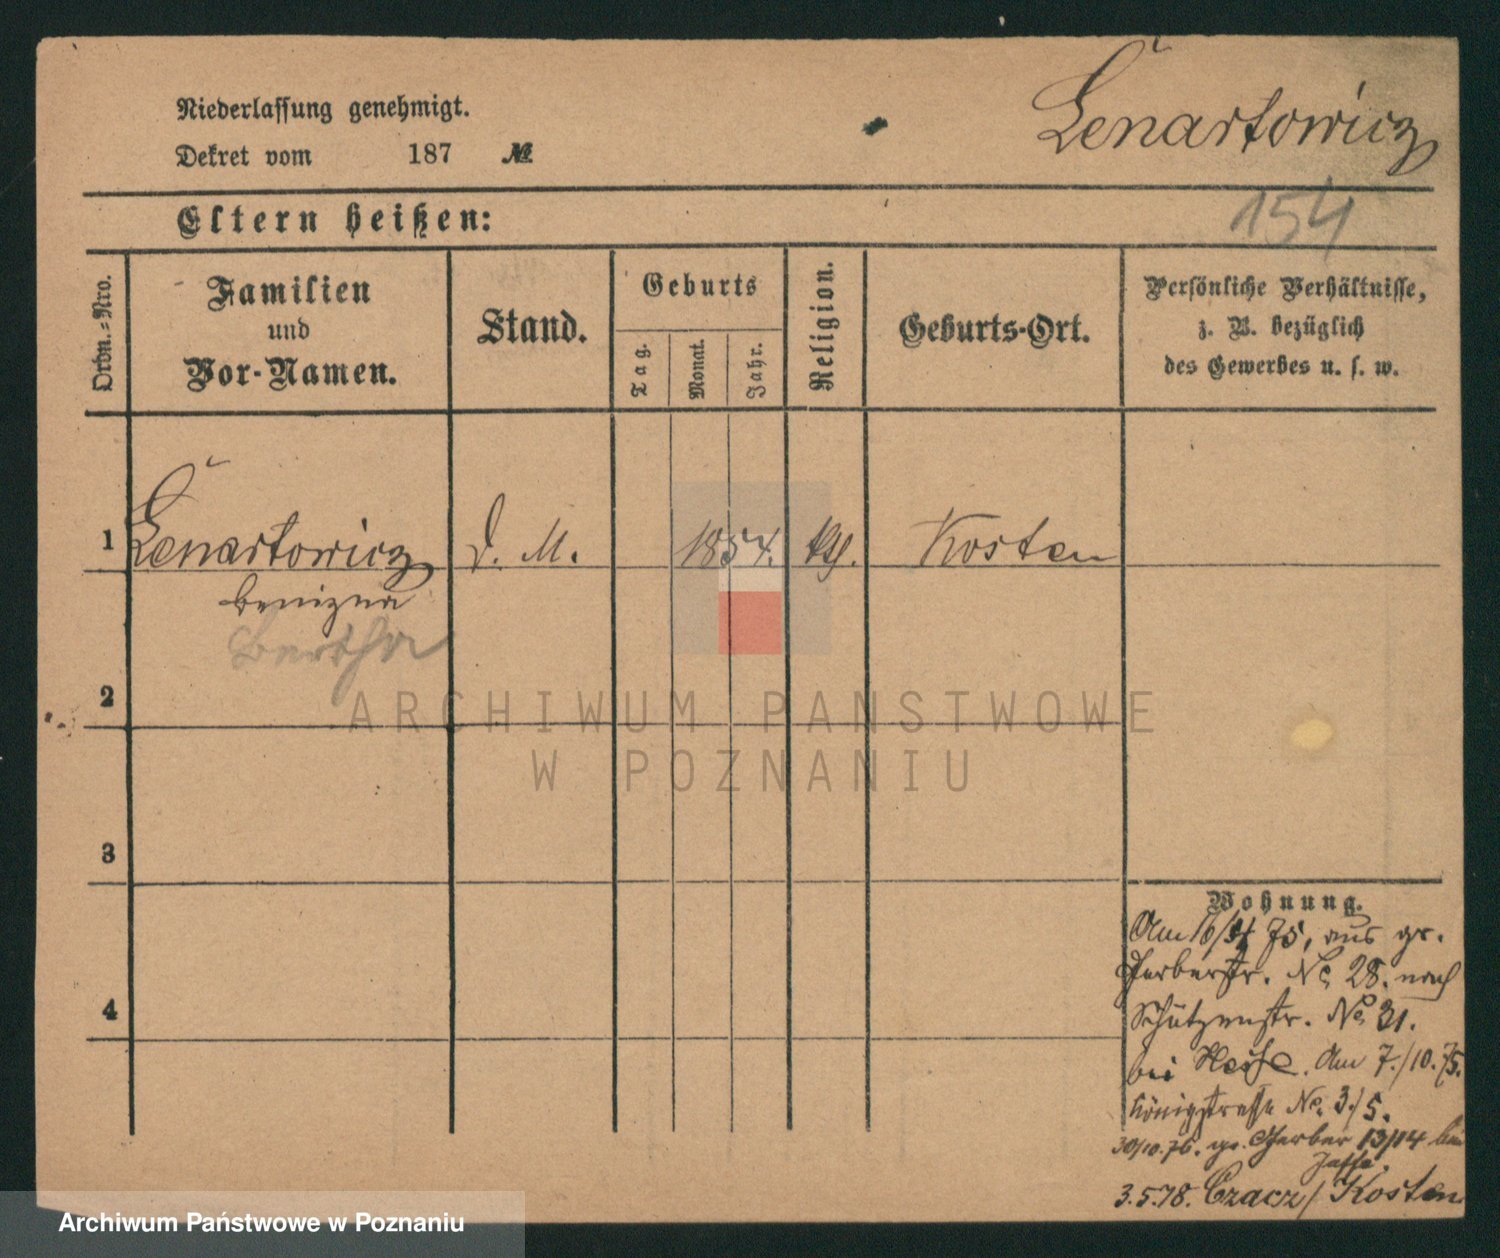 Lenartowicz
Niederlassung genehmigt.
Dekret vom 187 №
154
Eltern heißen:
Ordn.=Nro.
Familien
und
Vor-Namen.
Stand.
Geburts
Tag.
Monat.
Jahr.
Religion.
Geburts-Ort.
Persönliche Verhältnisse,
z. B. bezüglich
des Gewerbes u. s. w.
1 Lenartowicz D. M. 1854. kth. Kosten
benizna
Bertha
2
3
4
Wohnung.
Am 16/ 75, aus gr.
Gerberstr. No 28. nach
Schützenstr. No 31.
bei Hesse. Am 7./10.75.
Königstrasse No. 3./5.
30/10.76. gr. Gerber 13/14 bei
3.5.78. Czacz / Kosten
ARCHIWUM PAŃSTWOWE
W POZNANIU
Archiwum Państwowe w Poznaniu